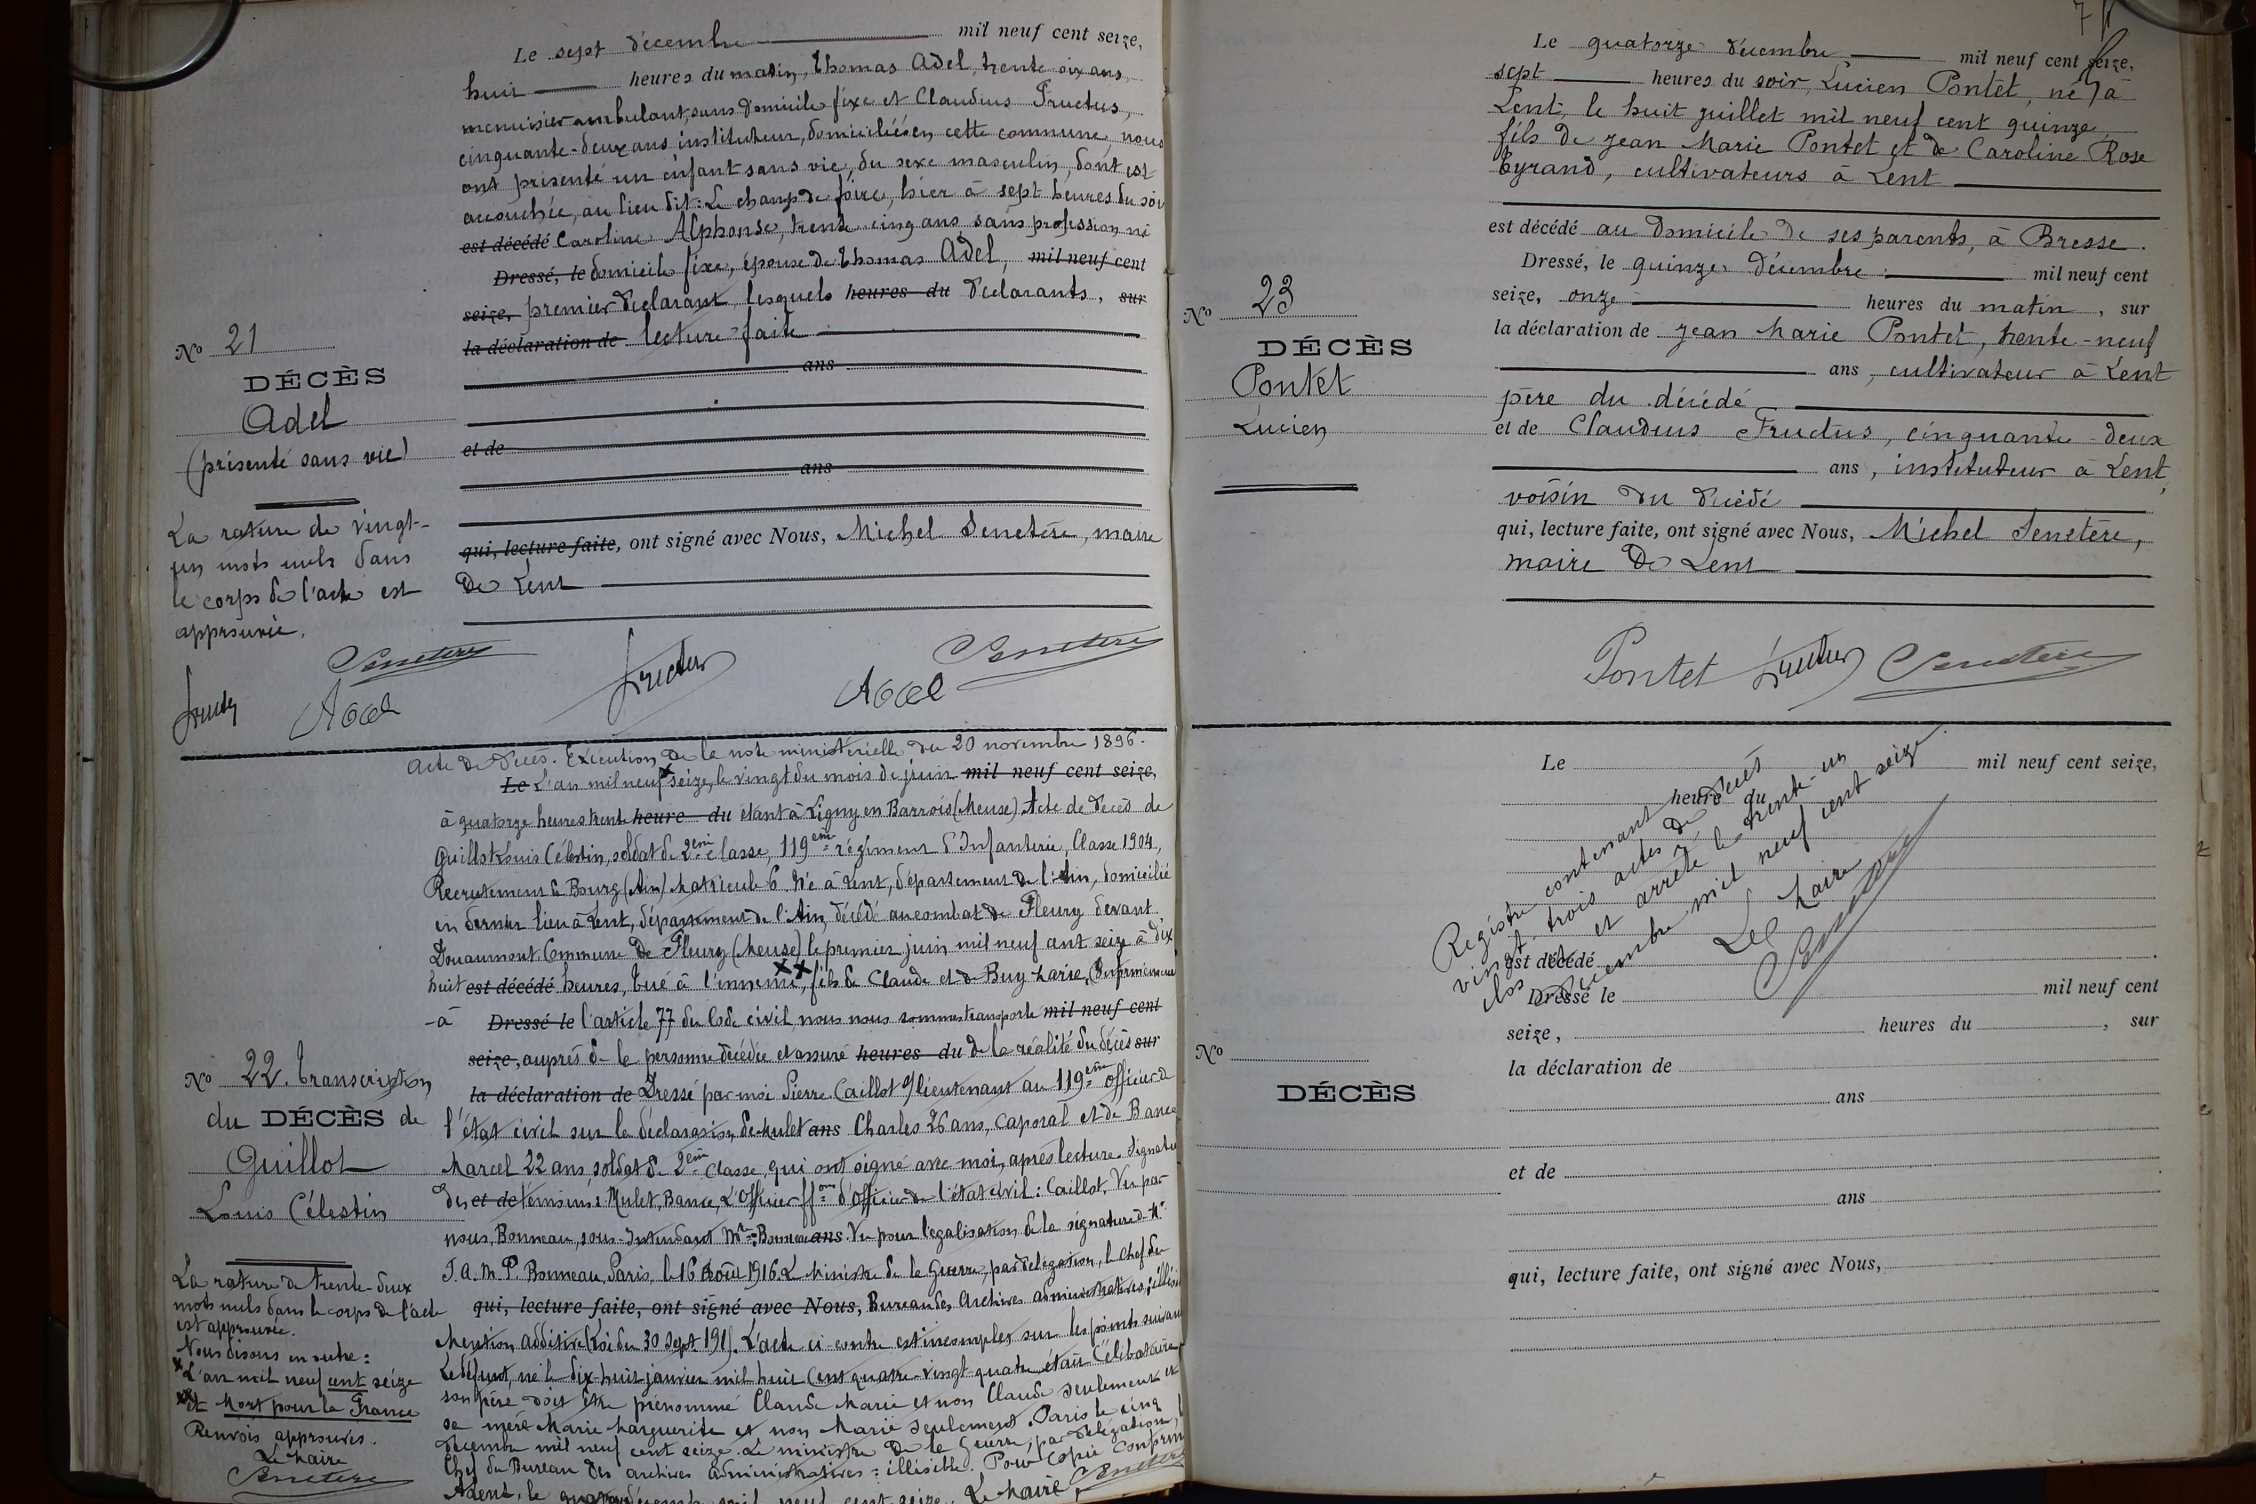 Le sept décembre mil neuf cent seize,
huit heures du matin, Thomas Adel, trente six ans,
menuisier ambulant, sans domicile fixe et Claudius Fructus,
cinquante-deux ans instituteur, domiciliés en cette commune, nous
ont présenté un enfant sans vie, du sexe masculin, dont est
accouchée, au lieu dit: Le champ de foire, hier à sept heures du soir
est décédé Caroline Alphonse, trente cinq ans sans profession ni
Dressé, le domicile fixe, épouse de Thomas Adel, mil neuf cent
seize, premier déclarant, lesquels heures du déclarants, sur
la déclaration de lecture faite
ans
et de
ans
qui, lecture faite, ont signé avec Nous, Michel Senetère, maire
de Lent
No 21
DÉCÈS
Adel
(présenté sans vie)
La rature de vingt-
un mots nuls dans
le corps de l'acte est
approuvée.
Senetère
Fructus
Adel
Fructus
Adel
Senetère
Acte de décès. Exécution de la note ministérielle du 20 novembre 1896.
Le L'an mil neuf x seize, le vingt du mois de juin mil neuf cent seize,
à quatorze heures trente heure du étant à Ligny en Barrois (Meuse) Acte de décès de
Guillot Louis Célestin, soldat de 2ème classe, 119ème régiment d'Infanterie, Classe 1904,
Recrutement de Bourg (Ain) Matricule 6. Né à Lent, département de l'Ain, domicilié
en dernier lieu à Lent, département de l'Ain, décédé au combat de Fleury devant
Douaumont, Commune de Fleury (Meuse) le premier juin mil neuf cent seize à dix
huit est décédé heures, tué à l'ennemi xx, fils de Claude et de Buy Marie. Conformément
-à Dressé le l'article 77 du Code civil, nous nous sommes transporté mil neuf cent
seize, auprès de la personne décédée et assuré heures du de la réalité du décès sur
la déclaration de Dressé par moi Pierre Caillot s/lieutenant au 119ème officier de
l'état civil sur la déclaration de Mulet ans Charles 26 ans, caporal et de Bance
Marcel 22 ans, soldat de 2ème classe, qui ont signé avec moi, après lecture. Signature
des et de témoins: Mulet, Bance, L'Officier ffons d'officier de l'état civil: Caillot. Vu par
nous, Bonneau, sous-Intendant Mre: Bonneau ans. Vu pour légalisation de la signature de Mr
J. A. M. P. Bonneau, Paris, le 16 Août 1916. Le Ministre de la Guerre, par délégation, le Chef du
qui, lecture faite, ont signé avec Nous, Bureau des Archives administratives: illisible
Mention additive (Loi du 30 Sept. 1915). L'acte ci-contre est incomplet sur les points suivants
Le défunt, né le dix-huit janvier mil huit cent quatre-vingt-quatre, était célibataire
son père doit être prénommé Claude Marie et non Claude seulement et
sa mère Marie Marguerite et non Marie seulement. Paris le cinq
décembre mil neuf cent seize. Le ministre de la Guerre, par délégation, le
Chef du Bureau des archives administratives: illisible. Pour copie conforme
A Lent, le quatorze décembre mil neuf cent seize. Le Maire, Senetère
No 22. Transcription
du DÉCÈS de
Guillot
Louis Célestin
La rature de trente-deux
mots nuls dans le corps de l'acte
est approuvée.
Nous disons en outre:
x L'an mil neuf cent seize
xx et Mort pour la France
Renvois approuvés.
Le Maire
Senetère
Le quatorze décembre mil neuf cent seize,
sept heures du soir, Lucien Pontet, né à
Lent, le huit juillet mil neuf cent quinze,
fils de Jean Marie Pontet et de Caroline Rose
Eyrand, cultivateurs à Lent
est décédé au domicile de ses parents, à Bresse.
Dressé, le quinze décembre mil neuf cent
seize, onze heures du matin, sur
la déclaration de Jean Marie Pontet, trente-neuf
ans, cultivateur à Lent
père du décédé
et de Claudius Fructus, cinquante-deux
ans, instituteur à Lent,
voisin du décédé
qui, lecture faite, ont signé avec Nous, Michel Senetère,
maire de Lent
No 23
DÉCÈS
Pontet
Lucien
Pontet Fructus Senetère
Le mil neuf cent seize,
heure du
est décédé
Dressé le mil neuf cent
seize, heures du , sur
la déclaration de
ans
et de
ans
qui, lecture faite, ont signé avec Nous,
No
DÉCÈS
Registre contenant
vingt-trois actes de décès
clos et arrêté le trente-un
décembre mil neuf cent seize
Le Maire
Senetère